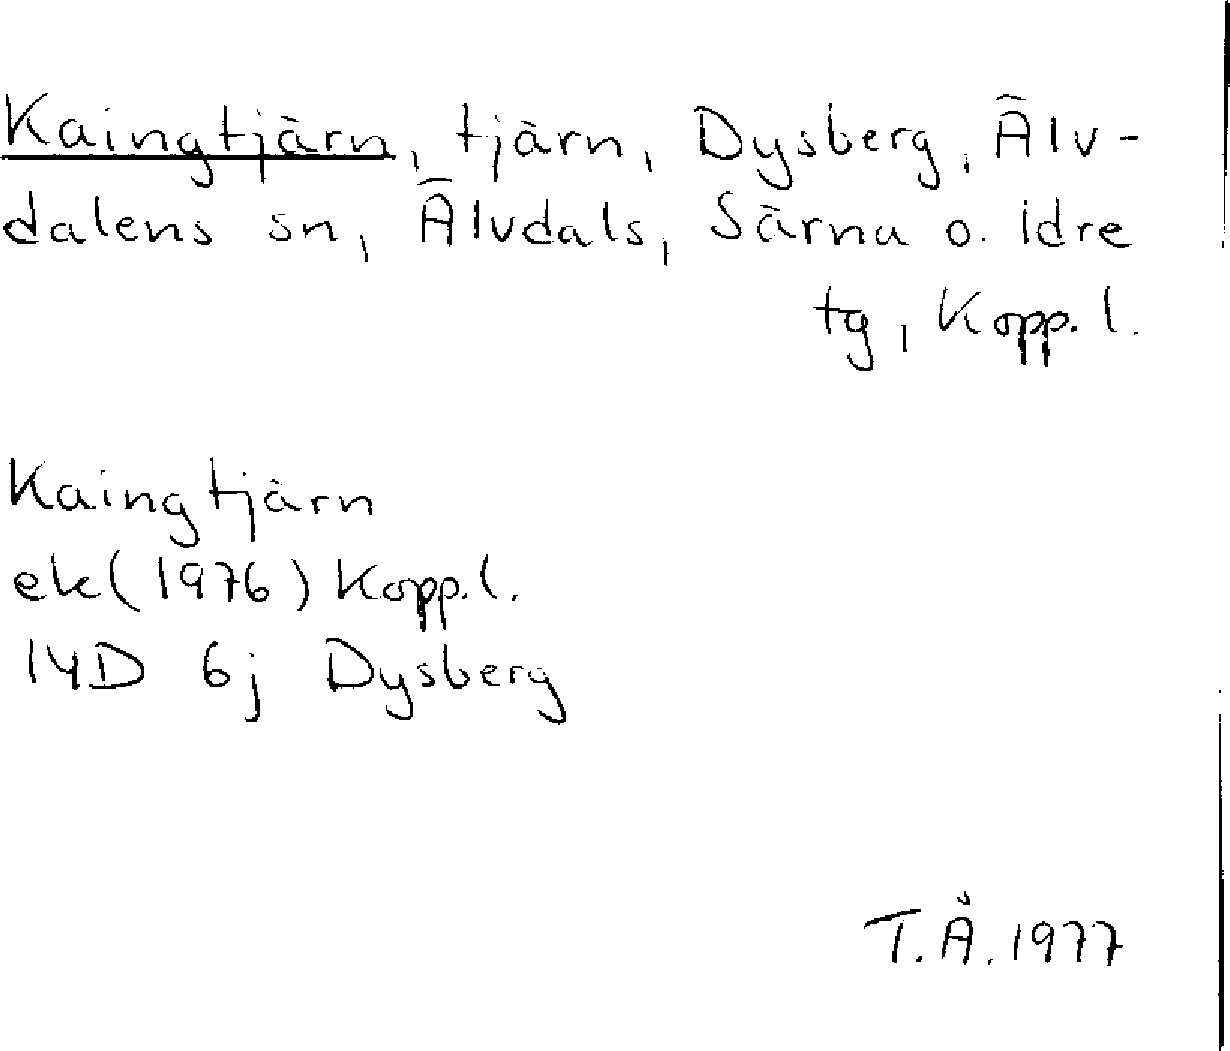 Kaingtjärn, tjärn, Dysberg, Älv-
dalens sn, Älvdals, Särna o. Idre
tg, Kopp. l.
Kaingtjärn
ek(1976) Kopp.l.
14D 6j Dysberg
T.Å.1977